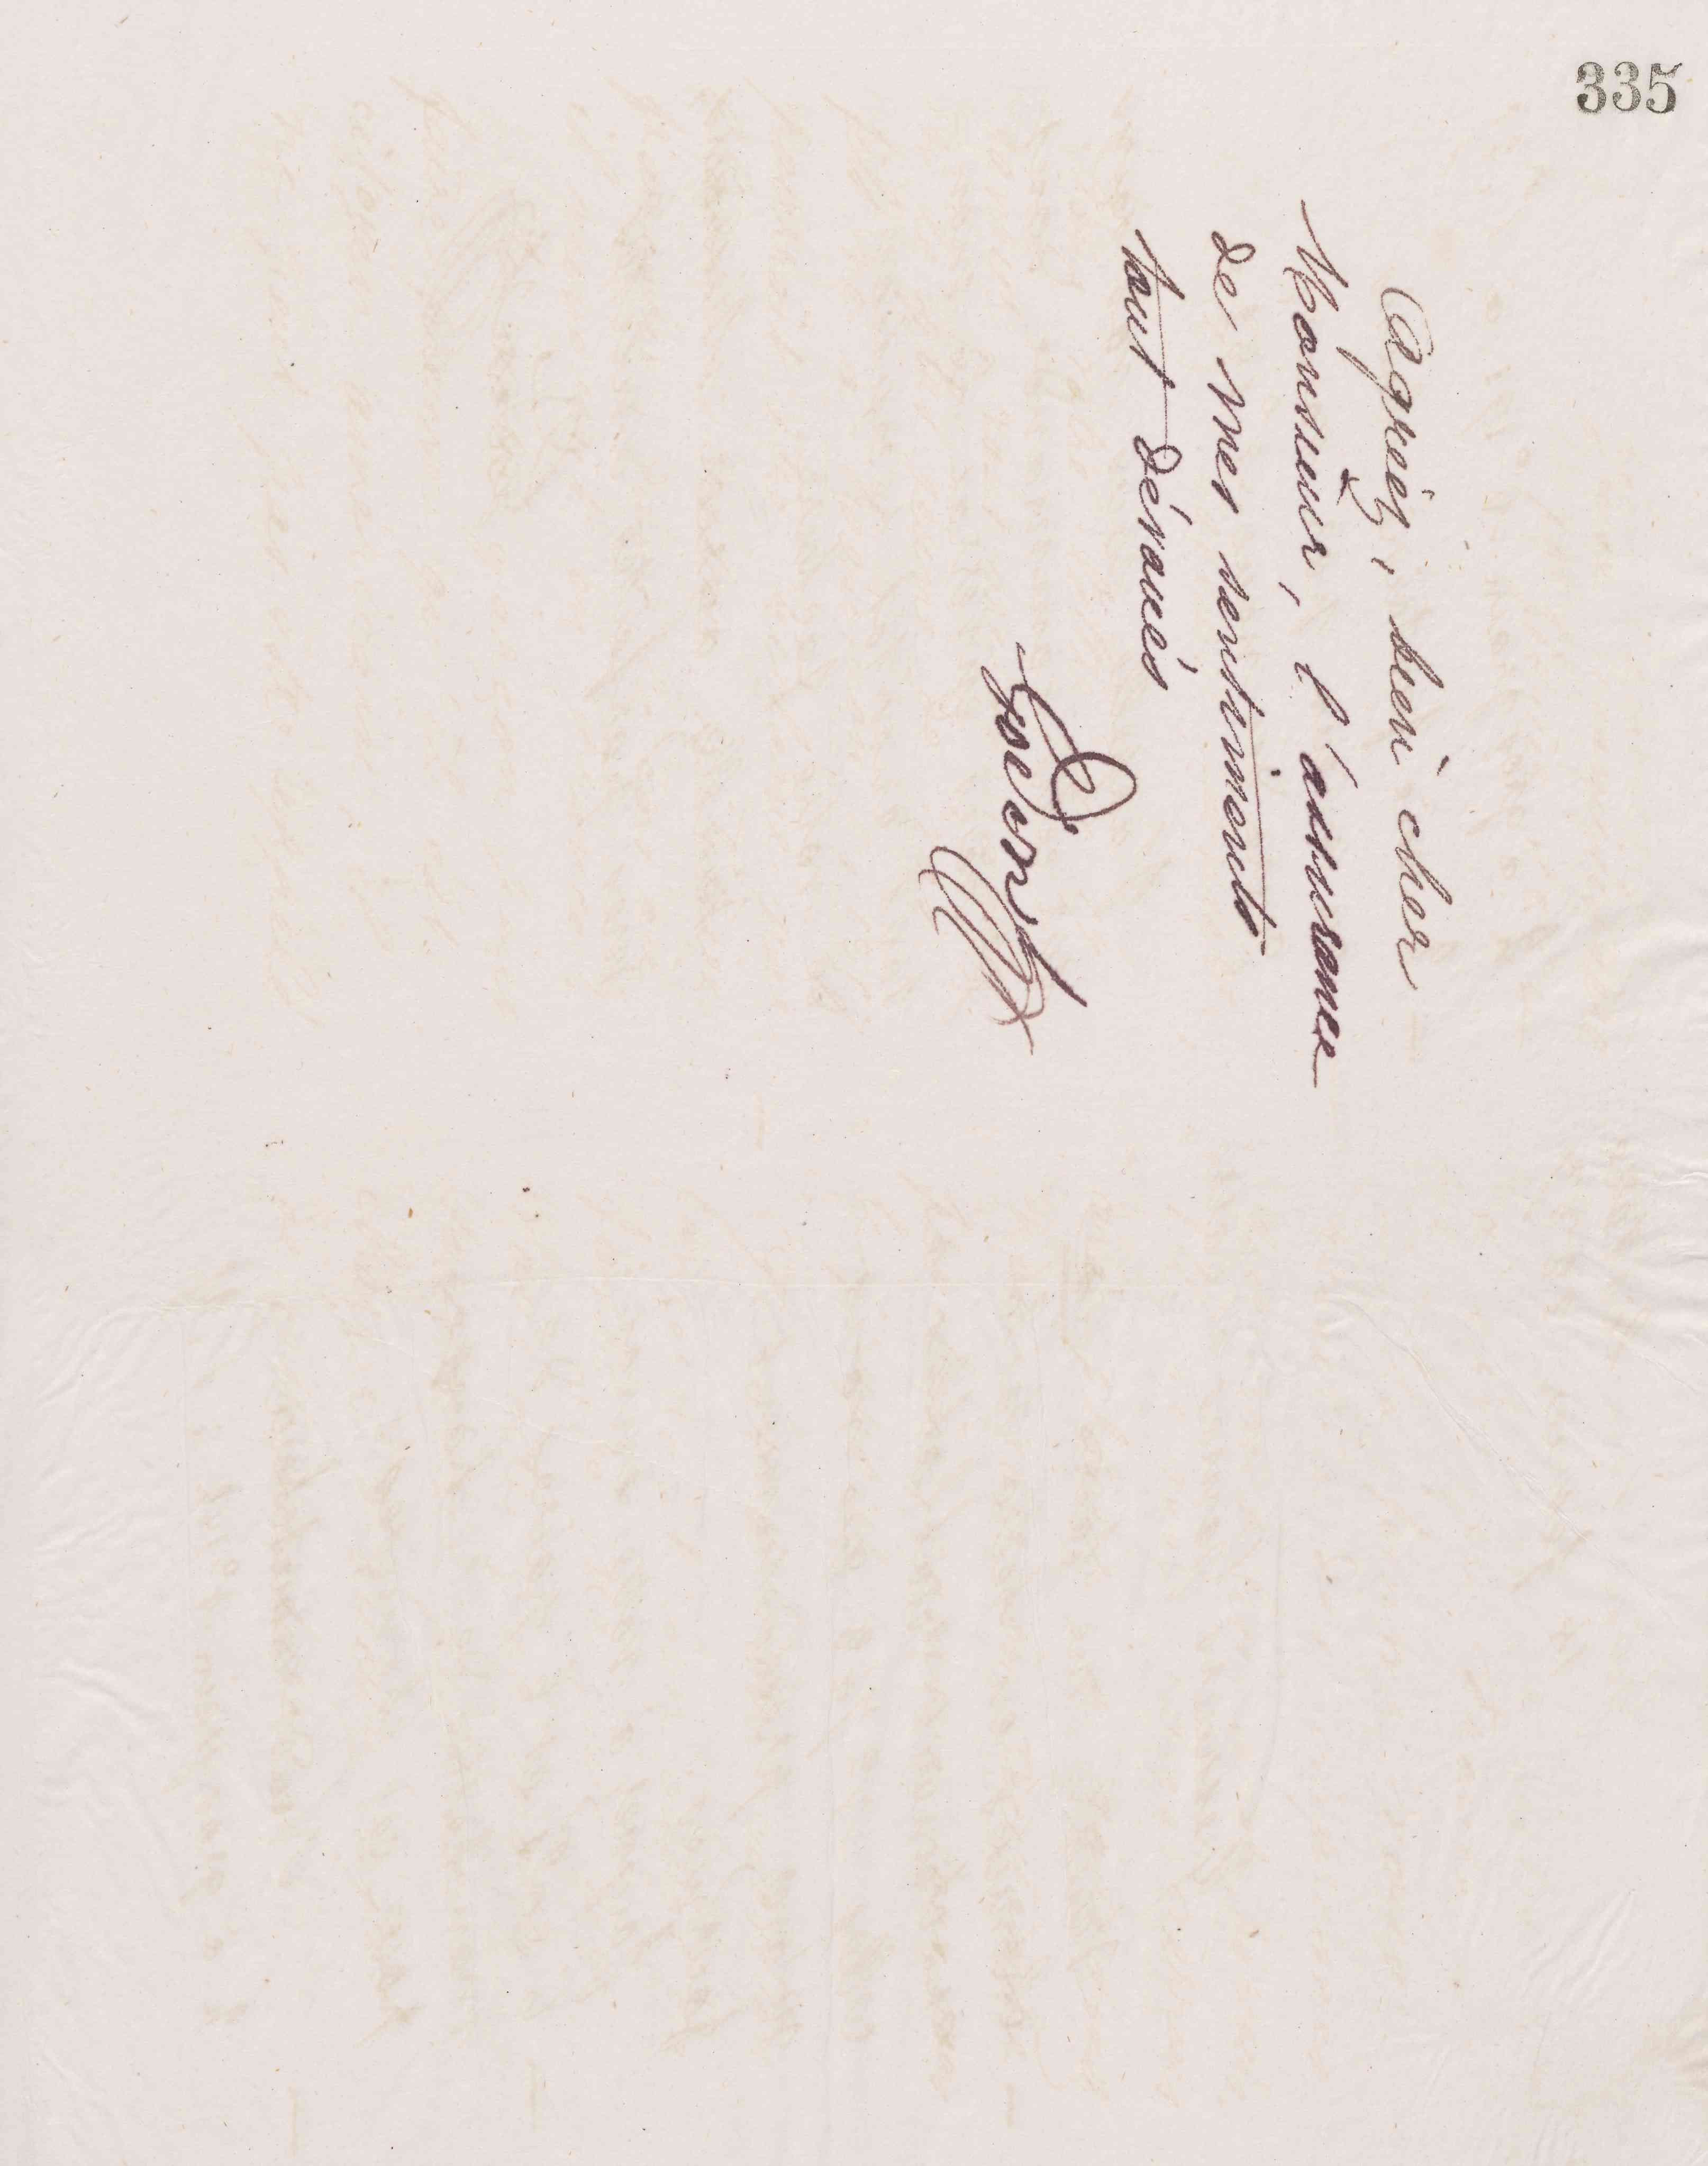 335
Agréez, bien cher
Monsieur, l'assurance
de mes sentiments
tout dévoués
Godin